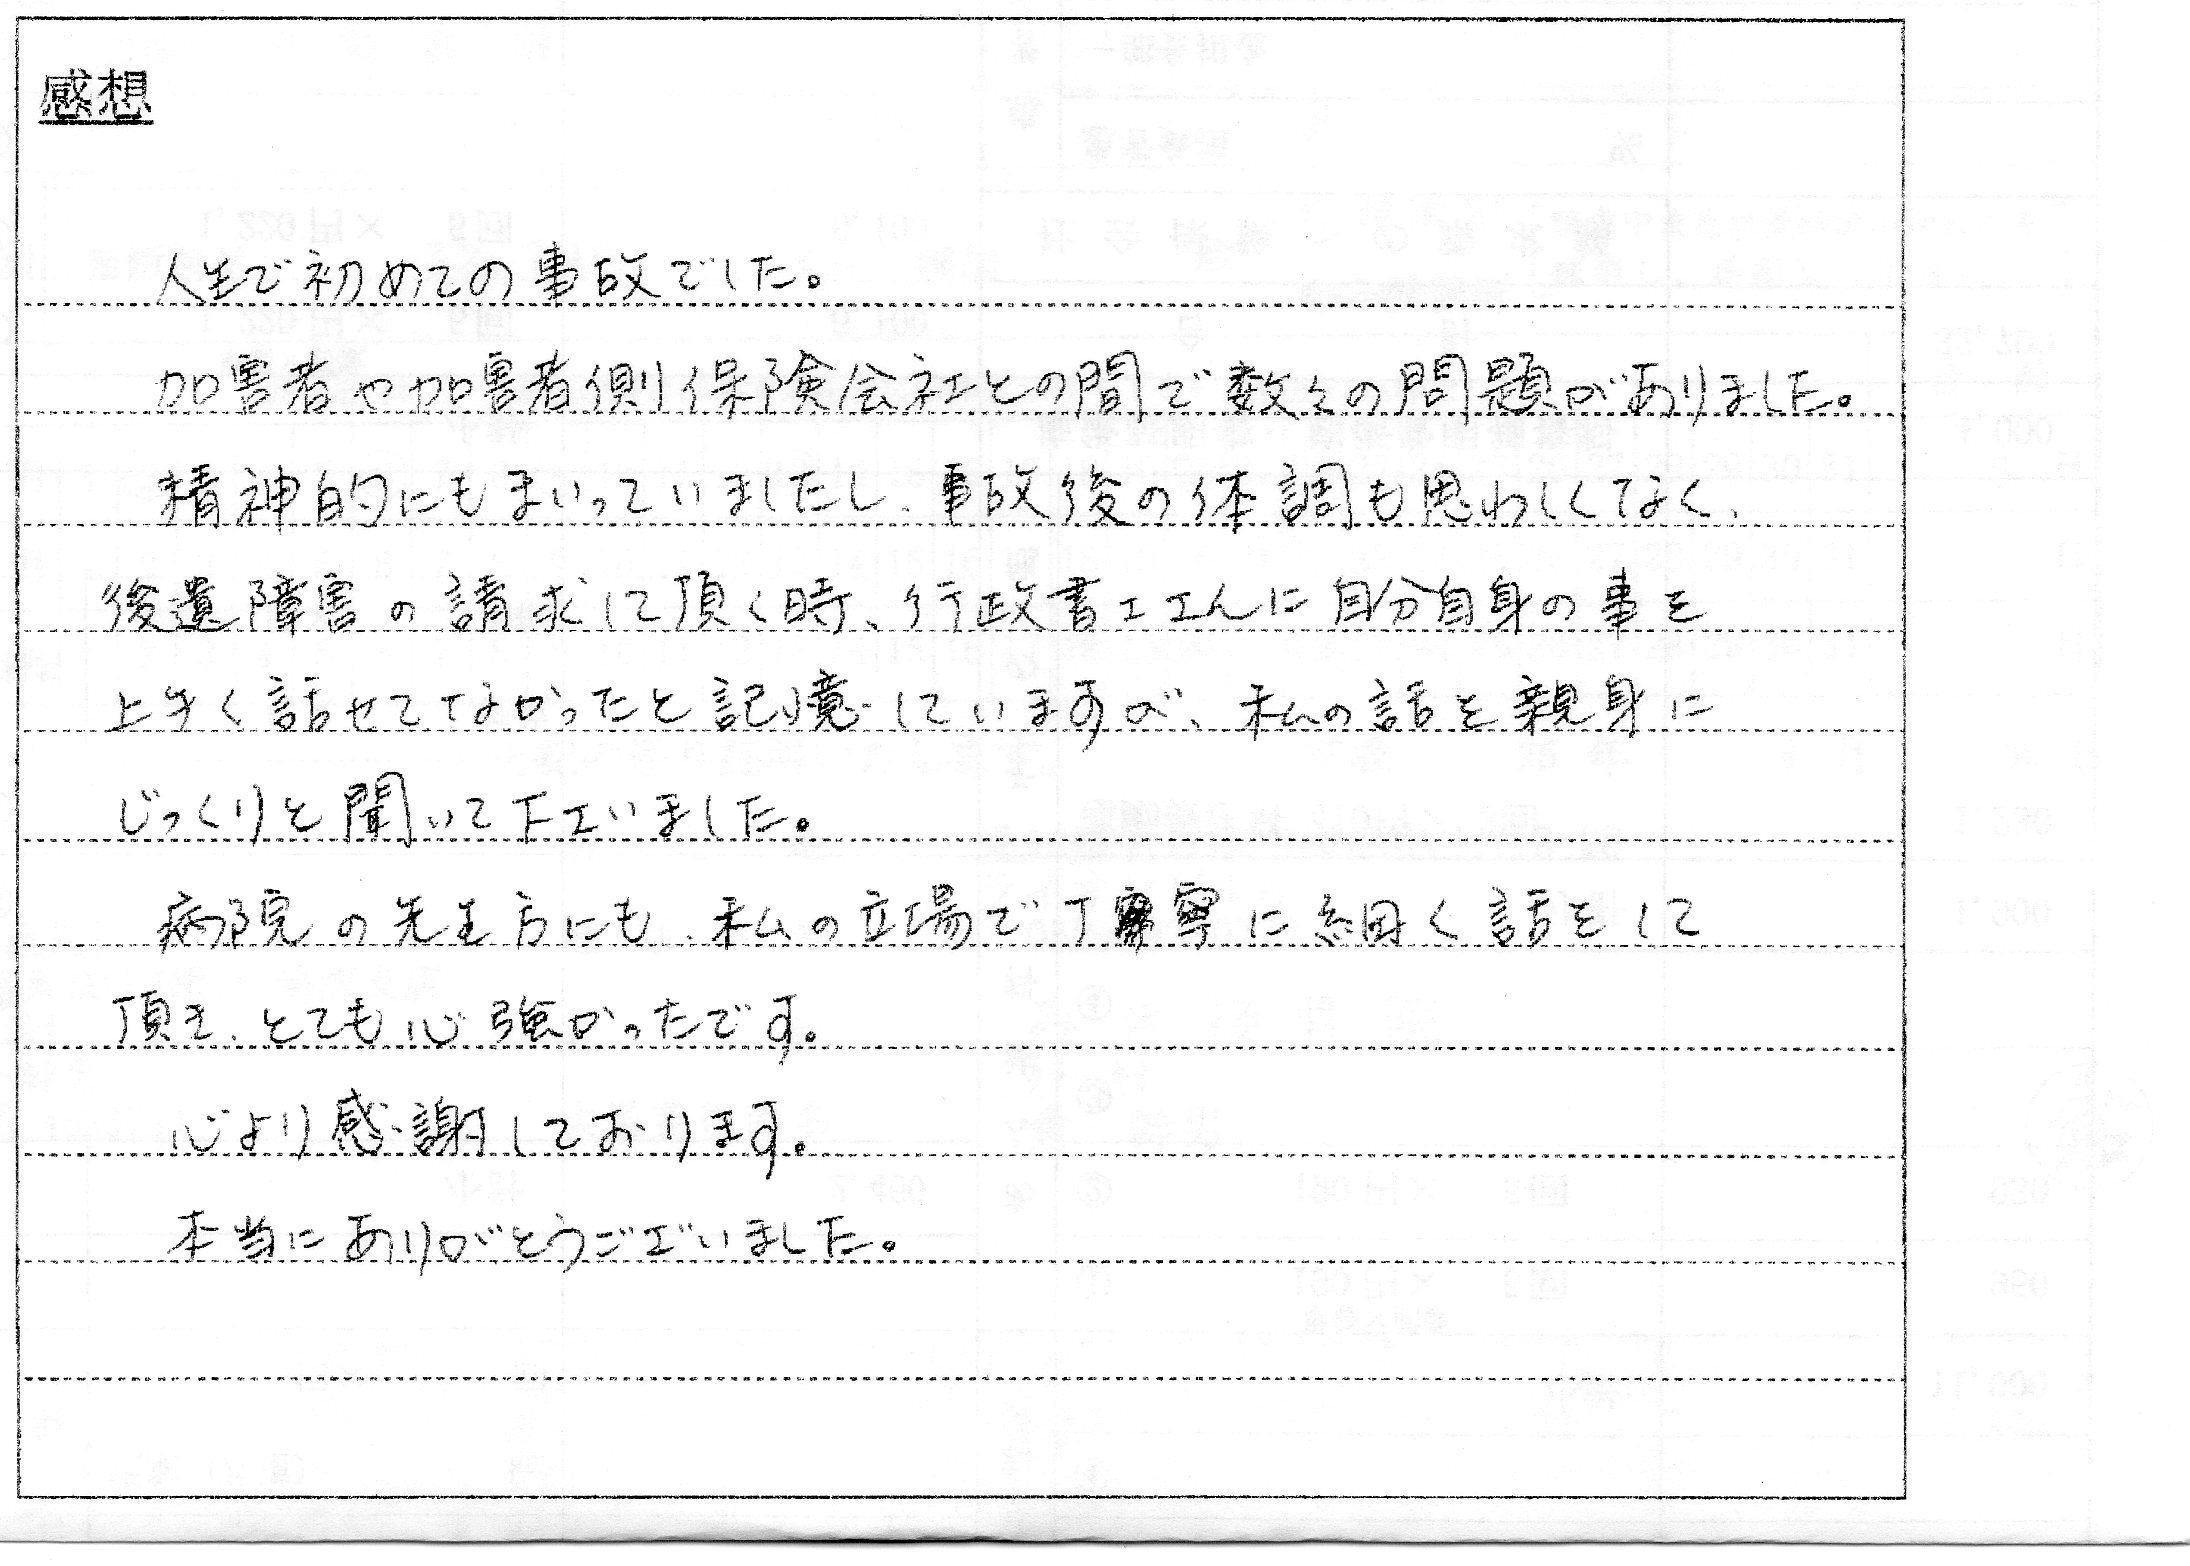 感想
人生で初めての事故でした。
加害者や加害者側保険会社との間で数々の問題がありました。
精神的にもまいっていましたし、事故後の体調も思わしくなく、
後遺障害の請求して頂く時、行政書士さんに自分自身の事を
上手く話せてなかったと記憶していますが、私の話を親身に
じっくりと聞いて下さいました。
病院の先生方にも、私の立場で丁寧に細く話をして
頂き、とても心強かったです。
心より感謝しております。
本当にありがとうございました。